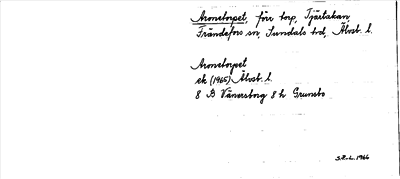 Aronetorpet, förr torp, Tjärtakan,
Frändefors sn, Sundals hd, Älvsb. l.
Aronetorpet
ek (1965) Älvsb. l.
8 B Vänersborg 8 h Grunsbo
S.E.L. 1966